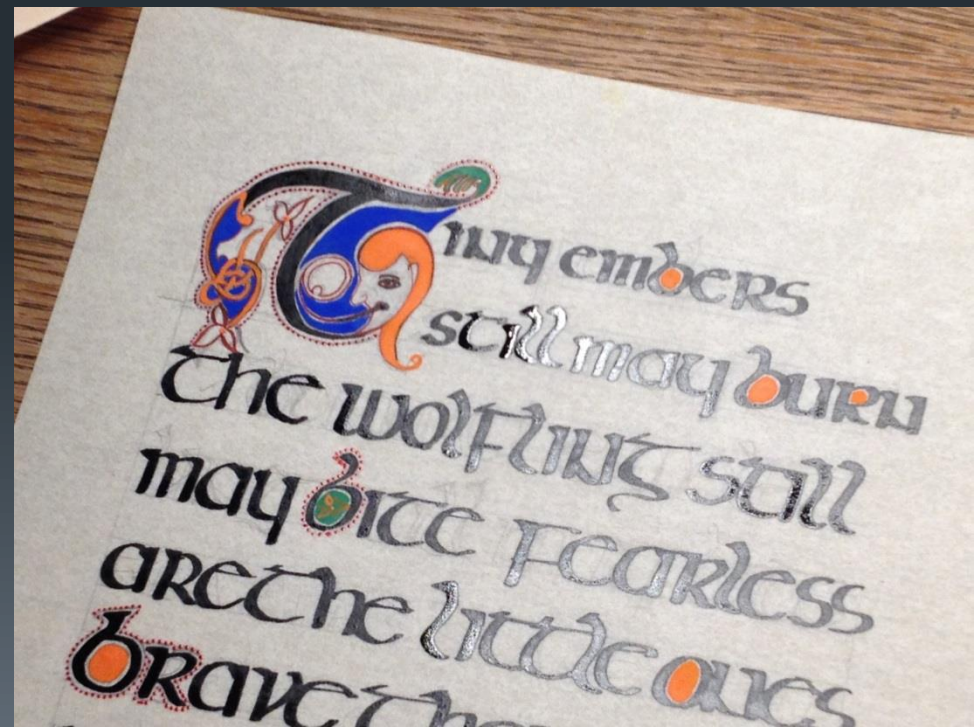 Tiny embers
still may burn
the wolfling still
may bite fearless
are the little ones
brave the